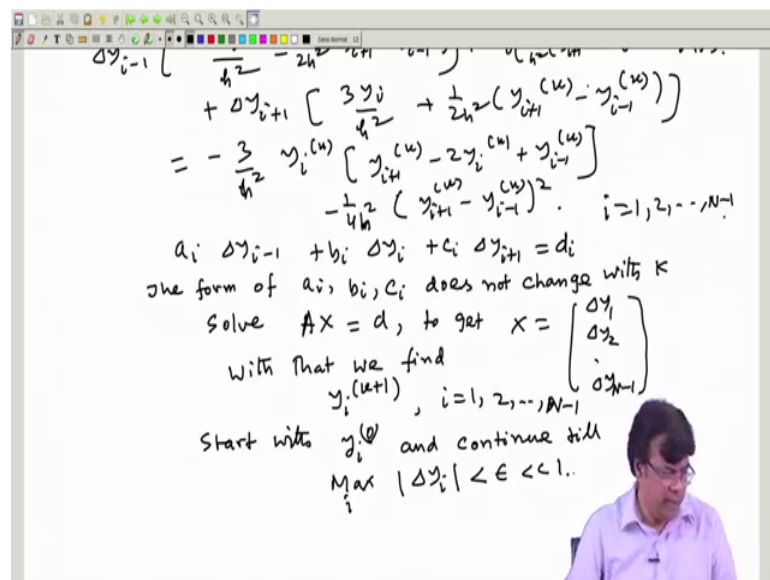 Δy_{i-1} [ /h² - /2h² i+1 i-1
+ Δy_{i+1} [ 3y_i/h² + 1/2h² (y_{i+1}^{(k)} - y_{i-1}^{(k)}) ]
= - 3/h² y_i^{(k)} [ y_{i+1}^{(k)} - 2y_i^{(k)} + y_{i-1}^{(k)} ]
- 1/4h² ( y_{i+1}^{(k)} - y_{i-1}^{(k)} )². i=1, 2, ..., N-1.
a_i Δy_{i-1} + b_i Δy_i + c_i Δy_{i+1} = d_i
The form of a_i, b_i, c_i does not change with K
Solve AX = d, to get X = [ Δy_1
Δy_2
.
Δy_{N-1} ]
with that we find
y_i^{(k+1)}, i=1, 2, .., N-1
Start with y_i^{(0)} and continue till
Max_i |Δy_i| < ε << 1.